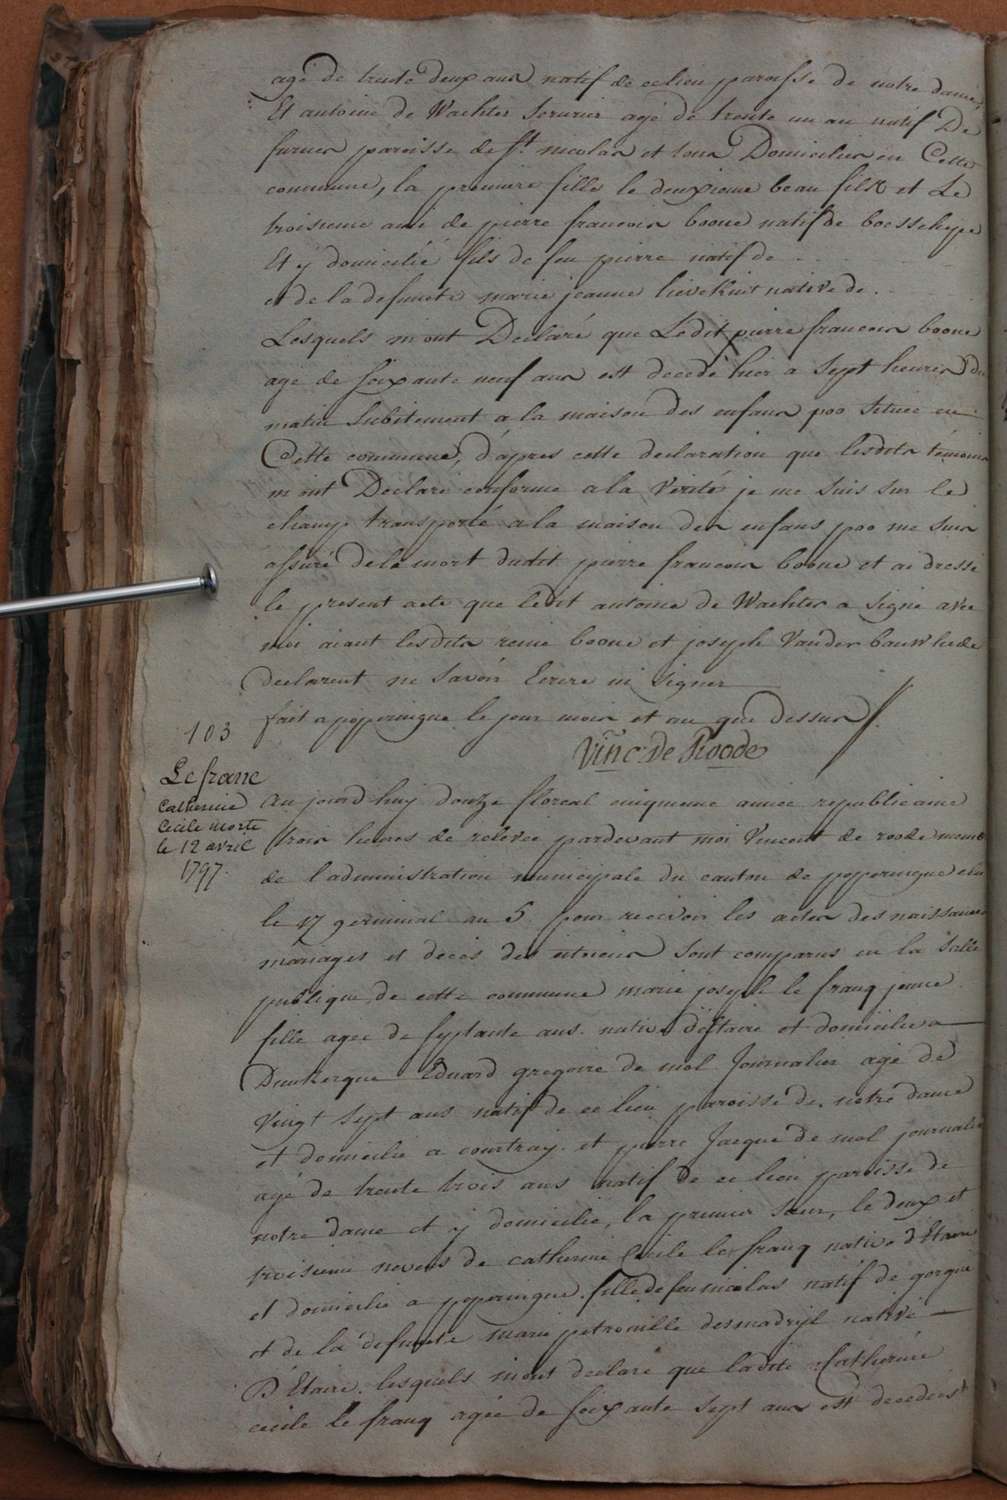 agé de trente deux ans natif de ce lieu paroisse de notre dame,
Et antoine de Wachter serurier agé de trente un an natif De
furnes paroisse de st nicolas et tous Domicilies en Cette
commune, la premiere fille le deuxieme beau fils et Le
troisieme ami de pierre francois boone natif de boesschepe
Et y domicilié fils de feu pierre natif de
et de la defuncte marie jeanne natives de
Lesquels m'ont Declaré que Ledit pierre francois boone
agé de soixante neuf ans est decedé hier a sept heures du
matin subitement a la maison des enfans poo située en
Cette commune, d'apres cette declaration que lesdits témoins
m'ont Declaré conforme a la verité je me suis sur le
champ transporté a la maison des enfans poo me suis
assuré de la mort dudit pierre francois boone et ai dressé
le present acte que ledit antoine de Wachter a signé avec
moi aiant lesdits reine boone et joseph Vander bauwhede
declarent ne savoir Ecrire ni signer
fait a poperingue le jour mois et an que dessus
Vinc. De Roode
103
Lefranc
Catherine
Cecile morte
le 12 avril
1797.
Au jourd'huy douze floreal cinquieme année republicaine
trois heures de relevée pardevant moi Vincent de roode membre
de l'administration municipale du canton de poperingue elu
le 17 germinal an 5 pour recevoir les actes des naissances
mariages et décès des citoiens sont comparus en la salle
publique de cette commune marie joseph le franq jeune
fille agee de septante ans native d'Estaire et domiciliee a
Dunkerque Eduard gregoire de mol Journalier agé de
vingt sept ans natif de ce lieu paroisse de notre dame
et domicilie a courtray. et pierre Jacque de mol journalier
agé de trente trois ans natif de ce lieu paroisse de
notre dame et y domicilie, la premier sœur, le deux et
troisieme neveus de catherine Cecile le franq native d'Etaire
et domicilie a poperingue. fille de feu nicolas natif de gorgue
et de la defuncte marie petronille desmadryl native
D'Etaire. lesquels m'ont declaré que ladite Catherine
cecile le franq agée de soixante sept ans est decedeés